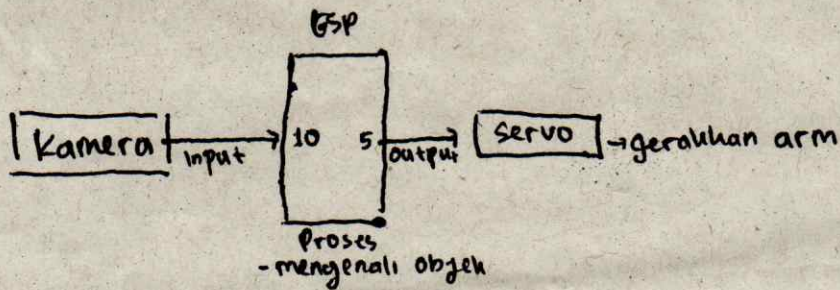 ESP
Kamera
input
10
5
output
servo
→gerakkan arm
Proses
- mengenali objek